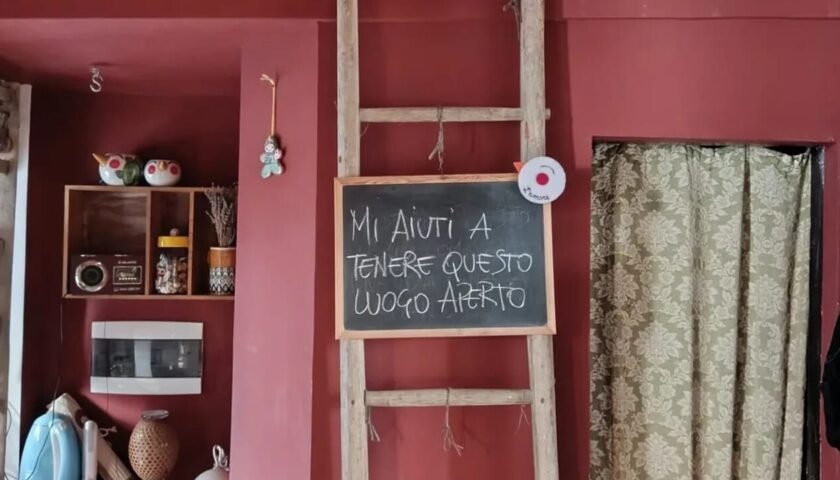 MI AIUTI A
TENERE QUESTO
LUOGO APERTO